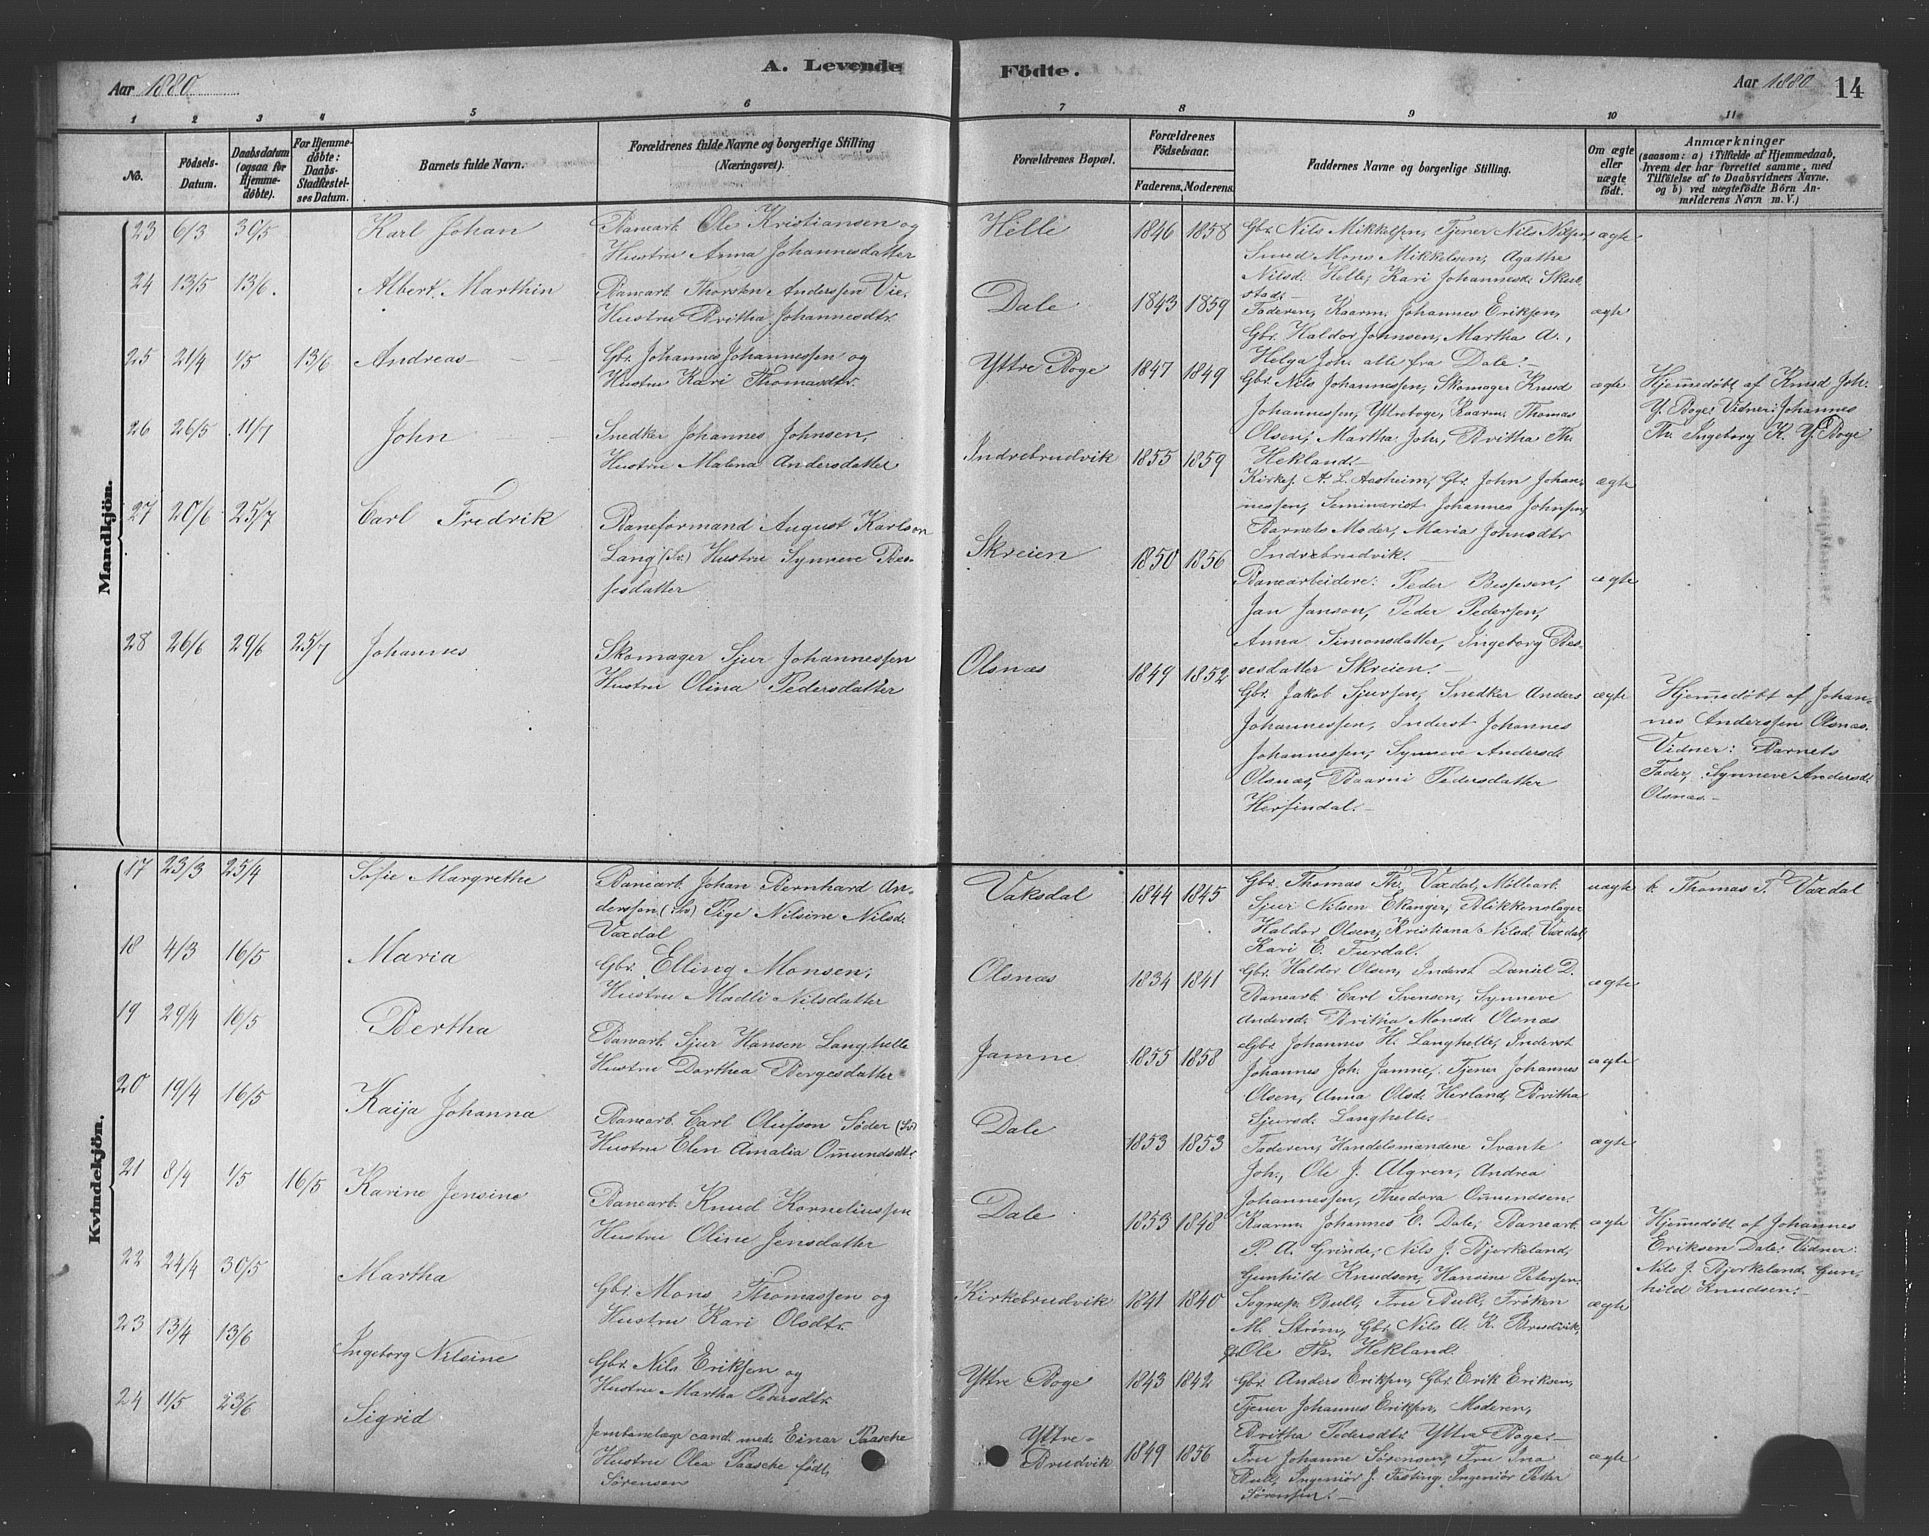 Aar 1880
A. Levende
Födte.
Aar 1880
14
1 2 3 4 5 6 7 8 9 10 11
No.
Födsels-
Datum.
Daabsdatum
(ogsaa for
Hjemme-
döbte).
For Hjemme-
döbte:
Daabs-
Stadfæstel-
ses Datum.
Barnets fulde Navn.
Forældrenes fulde Navne og borgerlige Stilling
(Næringsvei).
Forældrenes Bopæl.
Forældrenes
Födselsaar.
Faderens. Moderens.
Faddernes Navne og borgerlige Stilling.
Om ægte
eller
uægte
födt.
Anmærkninger
(saasom: a) i Tilfælde af Hjemmedaab,
hvem der har forrettet samme, med
Tilföielse af to Daabsvidners Navne.
og b) ved uægtefödte Börn An-
melderens Navn m. V.)
Mandkjön.
23 6/3 30/5 Karl Johan
Banearb. Ole Kristiansen og
Hustru Anna Johannesdatter
Helle 1846 1858
Gbr. Nils Mikkelsen, Tjener Nils Nilsen
Smed Mons Mikkelsen, Agathe
Nilsd. Helle, Kari Johannesd.
stad.
ægte
24 13/5 13/6. Albert Marthin
Banearb. Thorstn Anderssen Vie.
Hustru Britha Johannesdtr.
Dale 1843 1859
Faderen, Kaarm. Johannes Eriksen,
Gbr. Haldor Johnsen, Martha A.,
Helga Joh. alle fra Dale.
ægte
25 21/4 1/5 13/6 Andreas
Gbr. Johannes Johannessen og
Hustru Kari Thomasdtr.
Yttre Boge 1847 1849
Gbr. Nils Johannessen, Skomager Knud
Johannessen, Yttreboge, Kaarm. Thomas
Olsen, Martha Joh., Britha Th.
Hekland.
ægte
Hjemmedøbt af Knud Joh.
Y. Boge. Vidner: Johannes
Th. Ingeborg K. Y. Boge
26 26/5 11/7 John
Snedker Johannes Johnsen,
Hustru Malena Andersdatter
Indrebrudvik 1855 1859
Kirkes. A. L. Aasheim, Gbr. John Johan-
nessen, Seminarist Johannes Johnsen,
Barnets Moder, Maria Johnsdtr
Indrebrudvik.
ægte
27 20/6 25/7 Carl Fredrik
Baneformand August Karlson
Lang (Sv.) Hustru Synneve Bes-
sesdatter
Skreien 1850 1856
Banearbeidere: Peder Bessesen,
Jan Janson, Peder Pedersen,
Anna Simonsdatter, Ingeborg Bes-
sesdatter Skreien.
ægte
28 26/6 29/6 25/7 Johannes
Skomager Sjur Johannessen
Hustru Olina Pedersdatter
Olsnæs 1849 1852
Gbr. Jakob Sjursen, Snedker Anders
Johannessen, Inderst Johannes
Johannessen, Synneve Andersd.
Olsnæs, Baarni Pedersdatter
Hersindal.
ægte
Hjemmedøbt af Johan-
nes Anderssen Olsnæs.
Vidner: Barnets
Fader, Synneve Andersd.
Olsnæs.
Kvindekjön.
17 23/3 25/4 Sofie Margrethe
Banearb. Johan Bernhard An-
derssen (Sv.) Pige Nilsine Nilsd.
Vaxdal
Vaksdal 1844 1845
Gbr. Thomas Th. Vaxdal, Møllearb.
Sjur Nilsen Ekanger, Blikkenslager
Haldor Olsen, Kristiana Nilsd. Vaxdal,
Kari E. Furdal.
uægte
b. Thomas T. Vaxdal
18 4/3 16/5 Maria
Gbr. Elling Monsen,
Hustru Madli Nilsdatter
Olsnæs 1834 1841
Gbr. Haldor Olsen, Inderst Daniel D.
Banearb. Carl Svensen, Synneve
Andersd. Britha Monsd. Olsnæs
ægte
19 29/4 16/5 Bertha
Banearb. Sjur Hansen Langhelle
Hustru Dorthea Børgesdatter
Jamne 1855 1858
Gbr. Johannes H. Langhelle, Inderst
Johannes Joh. Jamne, Tjener Johannes
Olsen, Anna Olsd. Herland, Britha
Sjursd. Langhelle.
ægte
20 19/4 16/5 Kaija Johanna
Banearb. Carl Olufson Söder (Sv.)
Hustru Elen Amalia Omundsdt.
Dale 1853 1853
Faderen, Handelsmændene Svante
Joh., Ole J. Algren, Andrea
Johannessen, Theodora Omundsen.
ægte
21 8/4 1/5 16/5 Karine Jensine
Banearb. Knud Korneliussen
Hustru Oline Jensdatter
Dale 1853 1848
Kaarm. Johannes E. Dale, Banearb.
P. A. Grinde, Nils J. Bjerkeland,
Gunhild Knudsen, Hansine Petersen.
ægte
Hjemmedøbt af Johannes
Eriksen Dale. Vidner:
Nils J. Bjerkeland. Gun-
hild Knudsen.
22 24/4 30/5 Martha
Gbr. Mons Thomassen og
Hustru Kari Olsdtr.
Kirkebrudvik 1841 1840
Sognep. Bull, Fru Bull, Frøken
M. Strøm, Gbr. Nils A. K. Brudvik,
Ole Th. Hekland.
ægte
23 13/4 13/6 Ingeborg Nilsine
Gbr. Nils Eriksen og
Hustru Martha Pedersdtr.
Yttre Boge 1843 1842
Gbr. Anders Eriksen, Gbr. Erik Eriksen,
Tjener Johannes Eriksen, Moderen,
Britha Pedersdtr. Yttre Boge.
24 11/5 23/6 Sigrid
Jernbanelæge cand. med. Einar Paasche
Hustru Olea Paasche født,
Sørensen
Yttre-
Brudvik 1849 1856
Fru Johanne Sørensen, Fru Ina
Bull, Ingeniør J. Fasting, Ingeniør Petter
Sørensen.
ægte